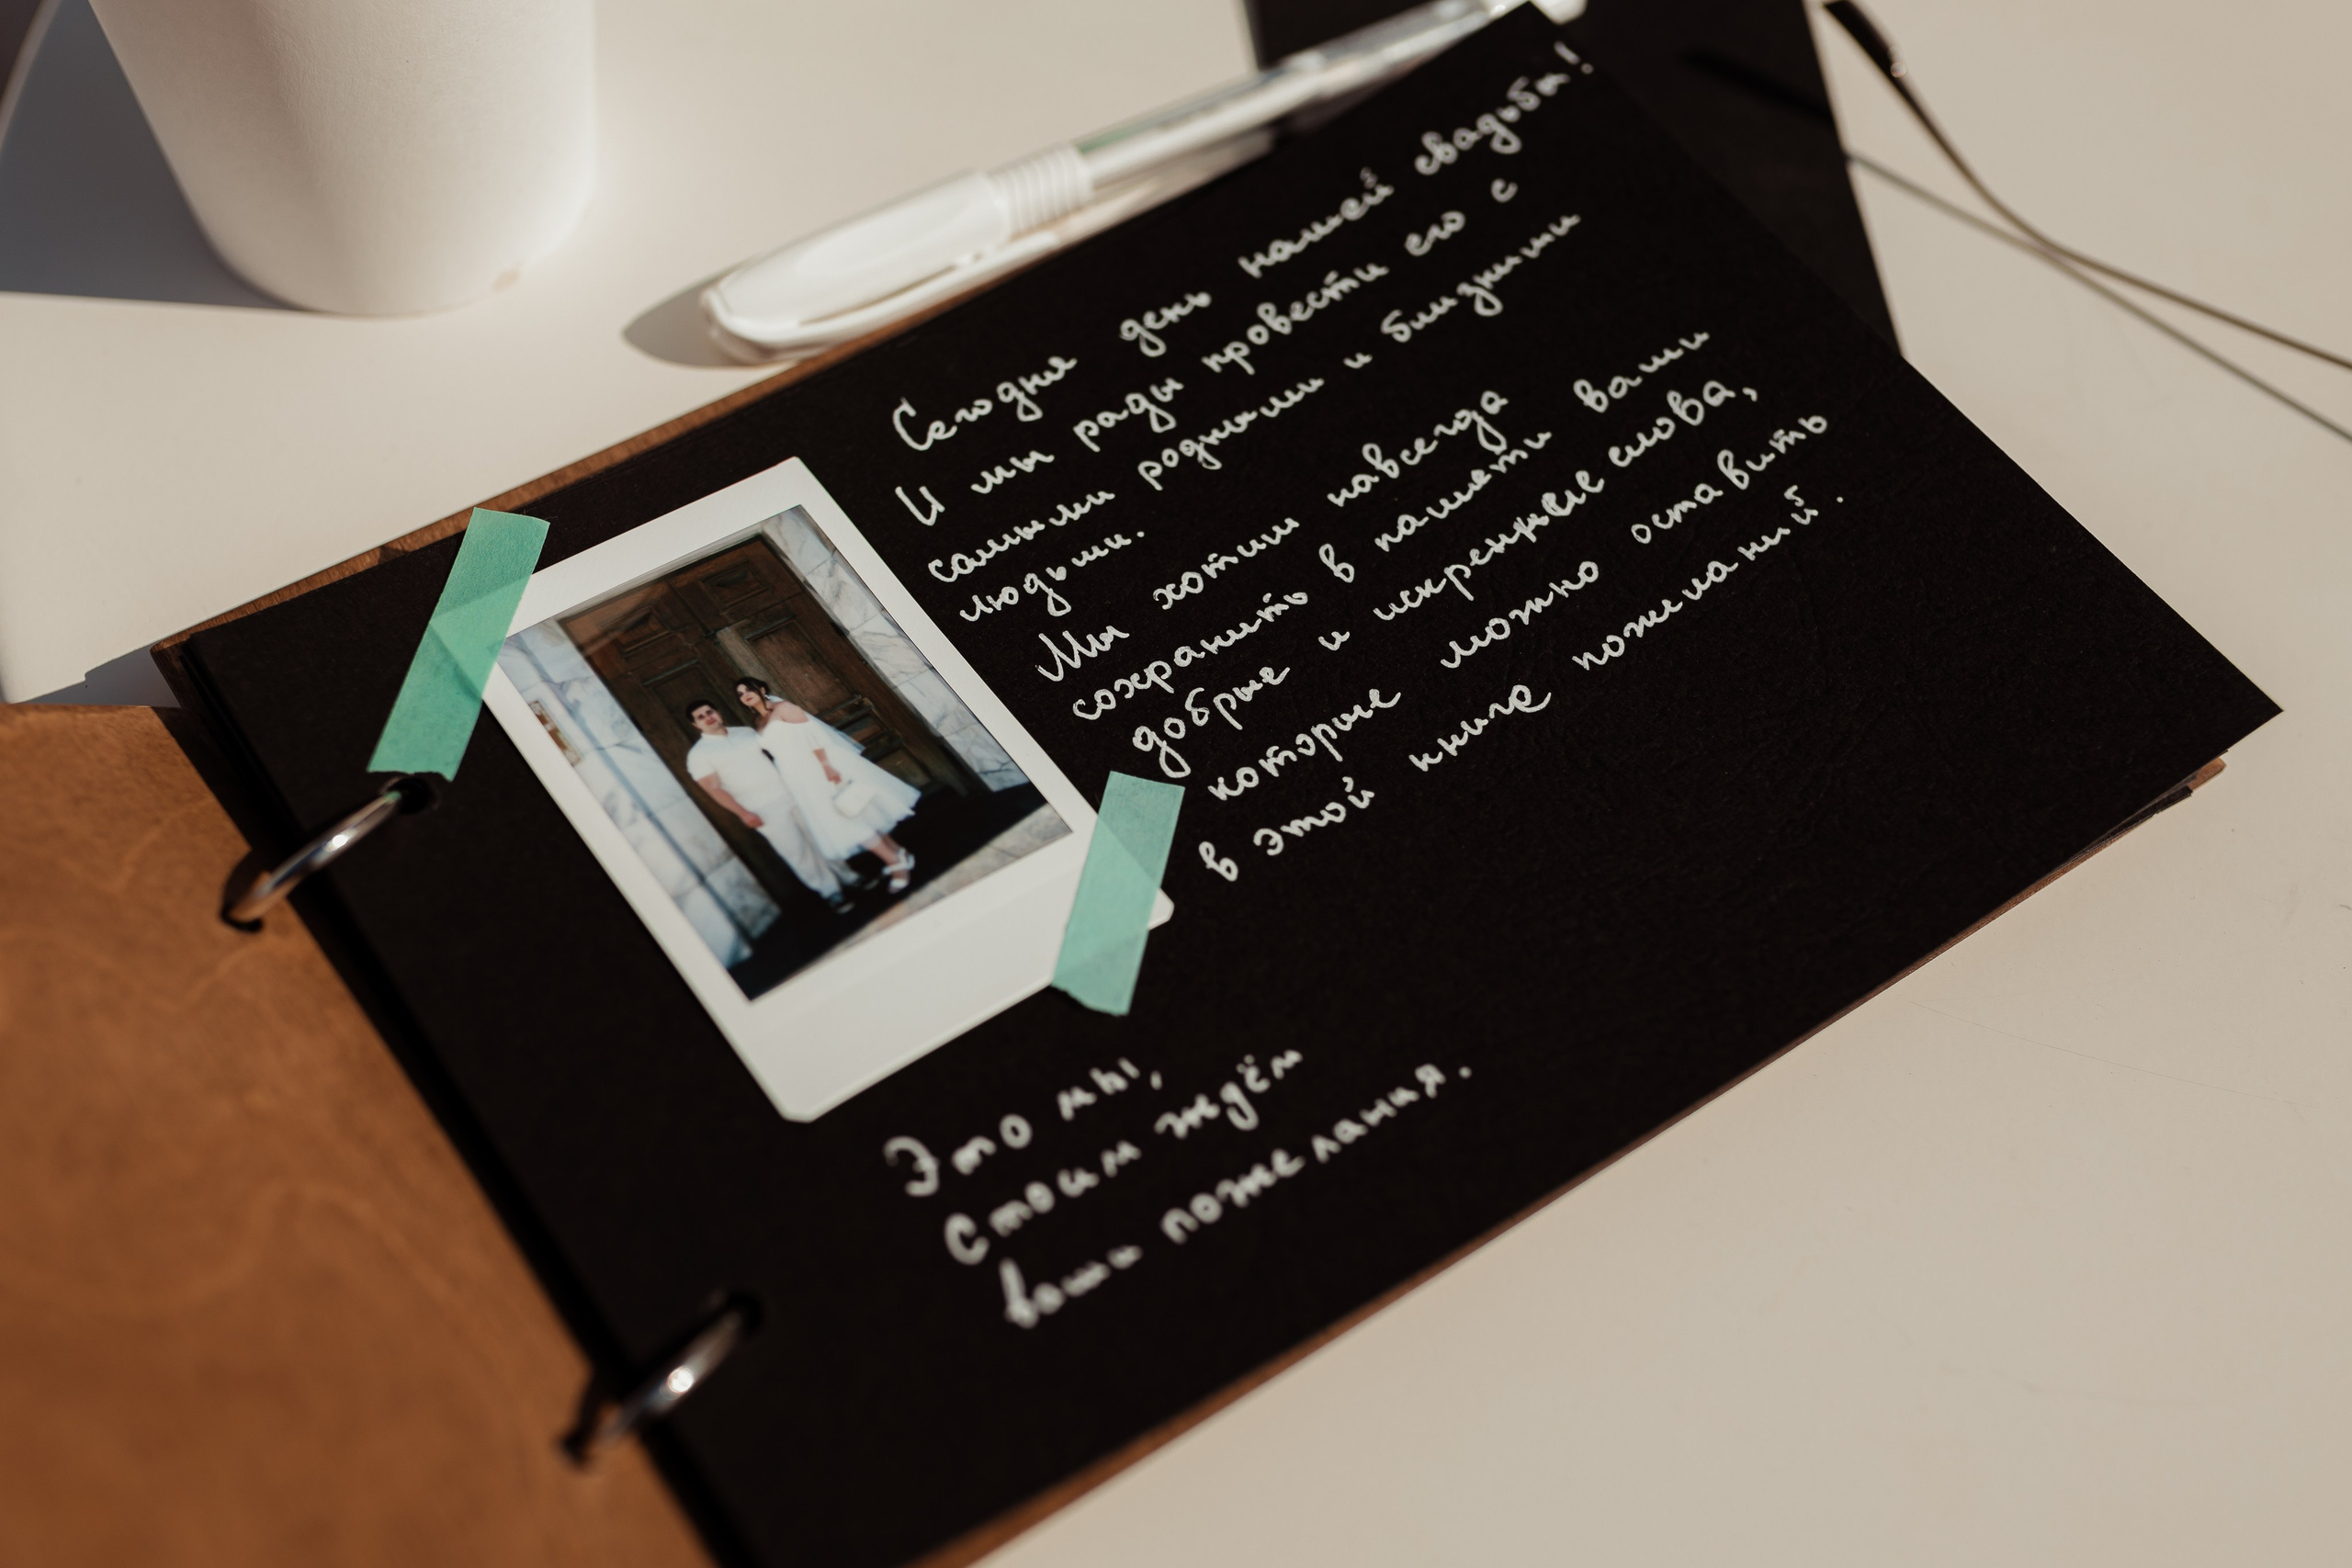 Сегодня день нашей свадьбы!
И мы рады провести его с
самыми родными и близкими
людьми.
Мы хотим навсегда
сохранить в памяти ваши
добрые и искренние слова,
которые можно оставить
в этой книге пожеланий.
Это мы,
Стоим ждём
ваши пожелания.